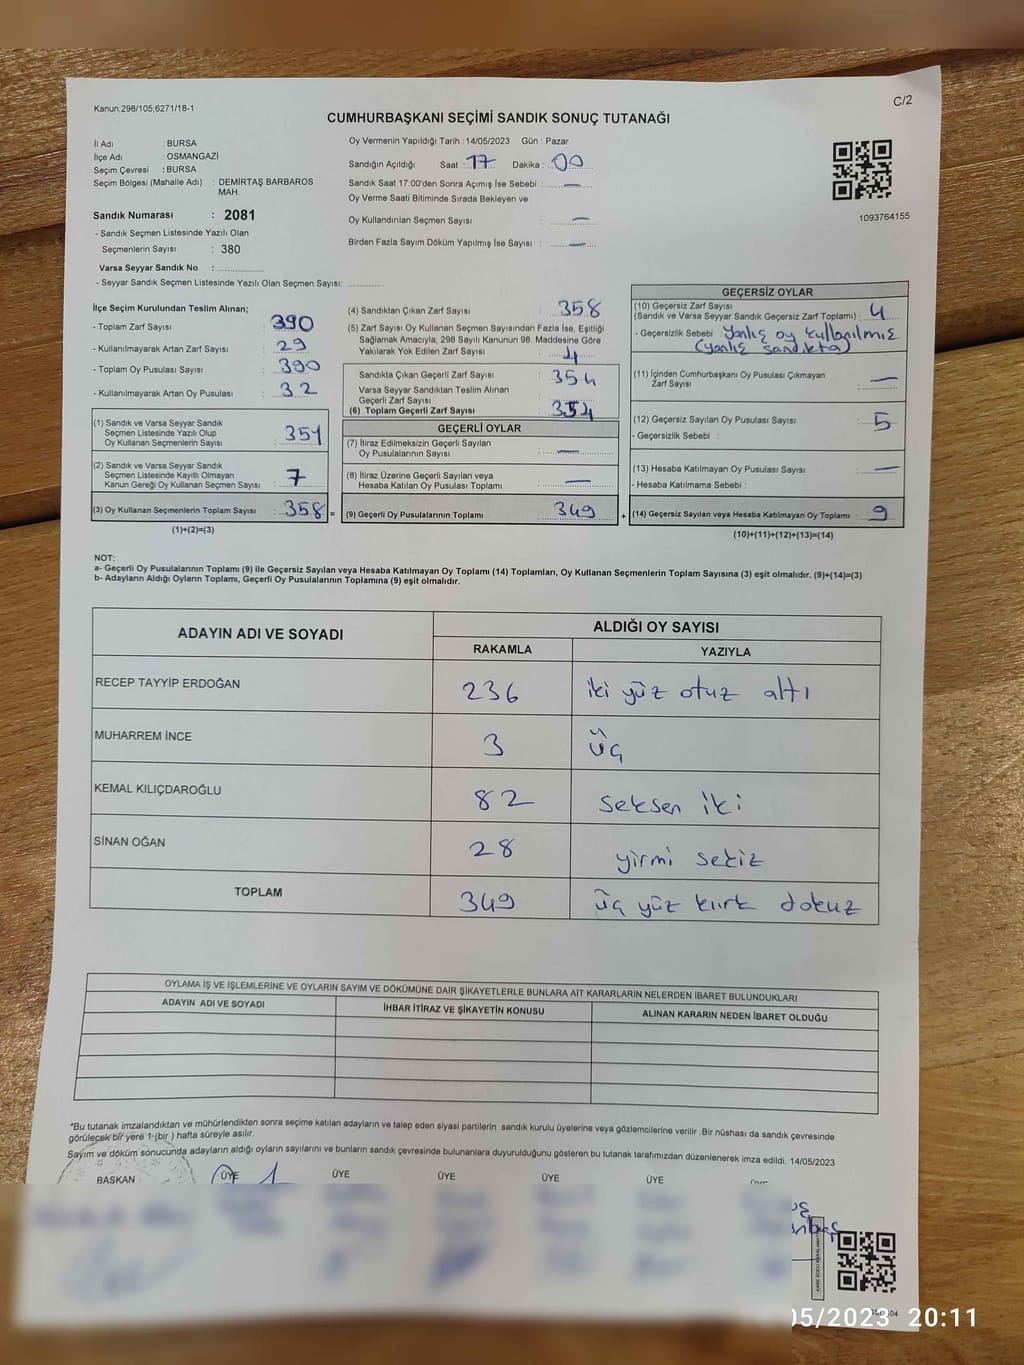 Kanun:298/105;6271/18-1
C/2
CUMHURBAŞKANI SEÇİMİ SANDIK SONUÇ TUTANAĞI
İl Adı : BURSA
İlçe Adı : OSMANGAZİ
Seçim Çevresi : BURSA
Seçim Bölgesi (Mahalle Adı) : DEMİRTAŞ BARBAROS
MAH.
Sandık Numarası : 2081
- Sandık Seçmen Listesinde Yazılı Olan
Seçmenlerin Sayısı : 380
Varsa Seyyar Sandık No :
- Seyyar Sandık Seçmen Listesinde Yazılı Olan Seçmen Sayısı:
Oy Vermenin Yapıldığı Tarih : 14/05/2023 Gün : Pazar
Sandığın Açıldığı Saat : 17 Dakika : 00
Sandık Saat 17:00'den Sonra Açımış İse Sebebi : —
Oy Verme Saati Bitiminde Sırada Bekleyen ve
Oy Kullandırılan Seçmen Sayısı : —
Birden Fazla Sayım Döküm Yapılmış İse Sayısı : —
1093764155
İlçe Seçim Kurulundan Teslim Alınan;
- Toplam Zarf Sayısı : 390
- Kullanılmayarak Artan Zarf Sayısı : 29
- Toplam Oy Pusulası Sayısı : 390
- Kullanılmayarak Artan Oy Pusulası : 32
(1) Sandık ve Varsa Seyyar Sandık
Seçmen Listesinde Yazılı Olup
Oy Kullanan Seçmenlerin Sayısı : 351
(2) Sandık ve Varsa Seyyar Sandık
Seçmen Listesinde Kayıtlı Olmayan
Kanun Gereği Oy Kullanan Seçmen Sayısı : 7
(3) Oy Kullanan Seçmenlerin Toplam Sayısı : 358 =
(1)+(2)=(3)
(4) Sandıktan Çıkan Zarf Sayısı : 358
(5) Zarf Sayısı Oy Kullanan Seçmen Sayısından Fazla İse, Eşitliği
Sağlamak Amacıyla; 298 Sayılı Kanunun 98. Maddesine Göre
Yakılarak Yok Edilen Zarf Sayısı : 4
Sandıkta Çıkan Geçerli Zarf Sayısı : 354
Varsa Seyyar Sandıktan Teslim Alınan
Geçerli Zarf Sayısı :
(6) Toplam Geçerli Zarf Sayısı : 354
GEÇERLİ OYLAR
(7) İtiraz Edilmeksizin Geçerli Sayılan
Oy Pusulalarının Sayısı : —
(8) İtiraz Üzerine Geçerli Sayılan veya
Hesaba Katılan Oy Pusulası Toplamı : —
(9) Geçerli Oy Pusulalarının Toplamı : 349 +
GEÇERSİZ OYLAR
(10) Geçersiz Zarf Sayısı
(Sandık ve Varsa Seyyar Sandık Geçersiz Zarf Toplamı) : 4
- Geçersizlik Sebebi : Yanlış oy kullanılmış
(yanlış sandıkta)
(11) İçinden Cumhurbaşkanı Oy Pusulası Çıkmayan
Zarf Sayısı : —
(12) Geçersiz Sayılan Oy Pusulası Sayısı : 5
- Geçersizlik Sebebi :
(13) Hesaba Katılmayan Oy Pusulası Sayısı : —
- Hesaba Katılmama Sebebi :
(14) Geçersiz Sayılan veya Hesaba Katılmayan Oy Toplamı : 9
(10)+(11)+(12)+(13)=(14)
NOT:
a- Geçerli Oy Pusulalarının Toplamı (9) ile Geçersiz Sayılan veya Hesaba Katılmayan Oy Toplamı (14) Toplamları, Oy Kullanan Seçmenlerin Toplam Sayısına (3) eşit olmalıdır. (9)+(14)=(3)
b- Adayların Aldığı Oyların Toplamı, Geçerli Oy Pusulalarının Toplamına (9) eşit olmalıdır.
ADAYIN ADI VE SOYADI
ALDIĞI OY SAYISI
RAKAMLA YAZIYLA
RECEP TAYYİP ERDOĞAN 236 iki yüz otuz altı
MUHARREM İNCE 3 üç
KEMAL KILIÇDAROĞLU 82 seksen iki
SİNAN OĞAN 28 yirmi sekiz
TOPLAM 349 üç yüz kırk dokuz
OYLAMA İŞ VE İŞLEMLERİNE VE OYLARIN SAYIM VE DÖKÜMÜNE DAİR ŞİKAYETLERLE BUNLARA AİT KARARLARIN NELERDEN İBARET BULUNDUKLARI
ADAYIN ADI VE SOYADI İHBAR İTİRAZ VE ŞİKAYETİN KONUSU ALINAN KARARIN NEDEN İBARET OLDUĞU
*Bu tutanak imzalandıktan ve mühürlendikten sonra seçime katılan adayların ve talep eden siyasi partilerin sandık kurulu üyelerine veya gözlemcilerine verilir .Bir nüshası da sandık çevresinde
görülecek bir yere 1 (bir ) hafta süreyle asılır.
Sayım ve döküm sonucunda adayların aldığı oyların sayılarını ve bunların sandık çevresinde bulunanlara duyurulduğunu gösteren bu tutanak tarafımızdan düzenlenerek imza edildi. 14/05/2023
BAŞKAN ÜYE ÜYE ÜYE ÜYE ÜYE
05/2023 20:11